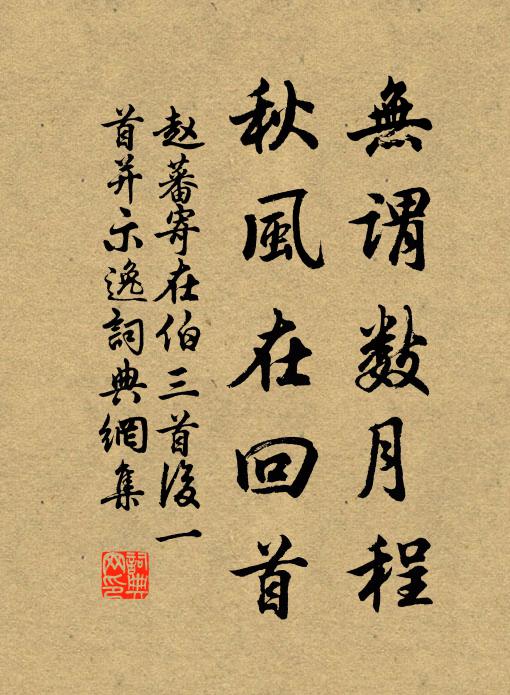 無謂数月程
秋風在回首
赵蕃寄在伯三首後一
首并示逸詞典網集
詞典
网印